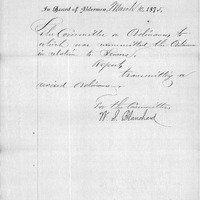 In Board of Aldermen, March 1875.
The Committee on Ordinances to
which was recommitted the Ordinance
in relation to Sewers,
Report
transmitting a
revised ordinance.
For the Committee
W. S. Blanchard